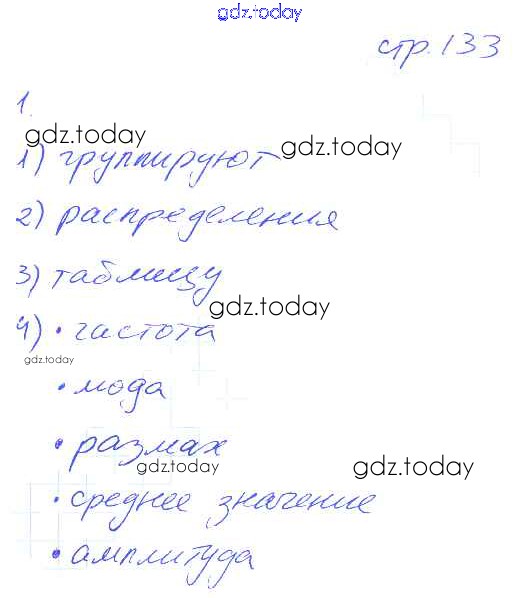 gdz.today
стр. 133
1.
gdz.today
gdz.today
1) группируют
2) распределения
3) таблицу
gdz.today
4) • частота
gdz.today
• мода
• размах
gdz.today
gdz.today
• среднее значение
• амплитуда